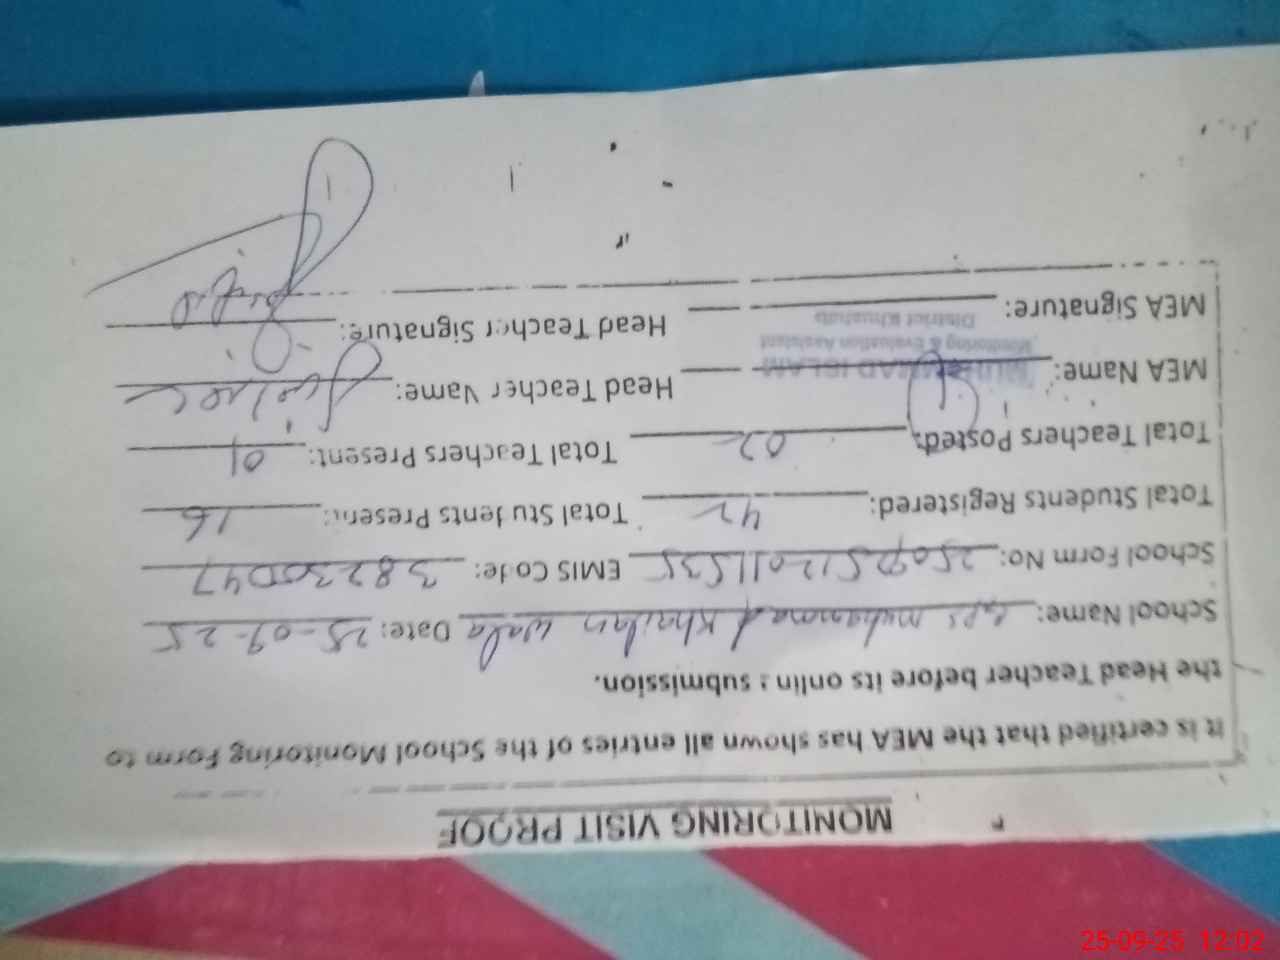 MONITORING VISIT PROOF
It is certified that the MEA has shown all entries of the School Monitoring Form to
the Head Teacher before its online submission.
School Name: GPS Muhammad Khailan wala Date: 25-09-25
School Form No: 250925120111535 EMIS Code: 38230047
Total Students Registered: 42 Total Students Present: 16
Total Teachers Posted: 02 Total Teachers Present: 01
MEA Name: MUHAMMAD ISLAM Head Teacher Name:
Monitoring & Evaluation Assistant
District Khushab
MEA Signature: Head Teacher Signature:
25-09-25 12:02